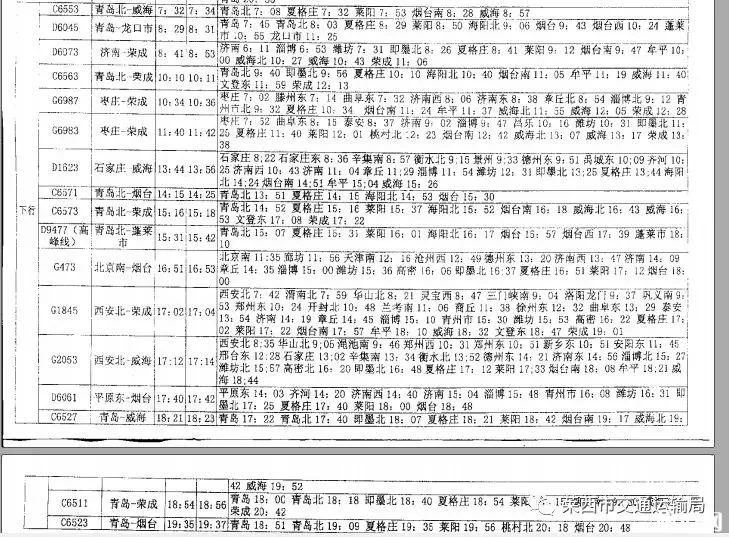 C6553 青岛北-威海 7: 32 7: 34 青岛北 7: 08 夏格庄 7: 32 莱阳 7: 53 烟台南 8: 28 威海 8: 57
D6045 青岛-龙口市 8: 29 8: 31 青岛 7: 45 青岛北 8: 03 夏格庄 8: 29 莱阳 8: 50 海阳北 9: 06 烟台 9: 43 烟台西 10: 24 蓬莱
市 10: 55 龙口市 11: 25
D6073 济南-荣成 8: 41 8: 53 济南 6: 11 淄博 6: 53 潍坊 7: 31 即墨北 8: 26 夏格庄 8: 41 莱阳 9: 12 烟台南 9: 47 牟平 10:
00 威海北 10: 27 威海 10: 43 荣成 11: 06
C6563 青岛北-荣成 10:10 10:11 青岛北 9: 40 即墨北 9: 56 夏格庄 10: 10 海阳北 10: 40 烟台南 11: 05 牟平 11: 19 威海 11: 40
文登东 11: 59 荣成 12: 13
G6987 枣庄-荣成 10:34 10:36 枣庄 7: 02 滕州东 7: 14 曲阜东 7: 32 济南西 8: 06 济南东 8: 38 章丘北 8: 54 淄博北 9: 12 青
州市北 9: 32 夏格庄 10: 34 烟台南 11: 24 牟平 11: 37 威海北 11: 55 威海 12: 05 荣成 12: 28
G6983 枣庄-荣成 11:40 11:42 枣庄 7: 52 曲阜东 8: 15 泰安 8: 37 济南 9: 02 淄博 9: 47 昌乐 10: 16 潍坊 10: 31 即墨北 11:
25 夏格庄 11: 40 莱阳 12: 01 桃村北 12: 23 烟台南 12: 42 威海北 13: 07 威海 13: 17 荣成 13:
38
D1623 石家庄-威海 13:44 13:56 石家庄 8;22 石家庄东 8: 36 辛集南 8: 57 衡水北 9;15 景州 9;33 德州东 9: 51 禹城东 10;09 齐河 10:
25 济南西 10: 43 济南 11: 04 章丘 11;29 淄博 11: 54 潍坊 12: 31 即墨北 13;25 夏格庄 13;44 海阳
北 14;24 烟台南 14;51 牟平 15;04 威海 15: 26
C6571 青岛北-烟台 14:15 14:25 青岛北 13: 51 夏格庄 14: 15 海阳北 14: 53 烟台 15: 30
下行 C6573 青岛北-荣成 15:16 15:18 青岛北 14: 52 夏格庄 15: 16 莱阳 15: 37 海阳北 15: 52 烟台南 16: 18 威海北 16: 43 威海 16:
53 文登东 17: 08 荣成 17: 22
D9477（高峰线） 青岛北-蓬莱市 15:31 15:42 青岛北 15: 07 夏格庄 15: 31 莱阳 16: 01 海阳北 16: 17 烟台 15: 57 烟台西 17: 39 蓬莱市 18:
10
G473 北京南-烟台 16:51 16:53 北京南 11:35 廊坊 11: 56 天津南 12: 16 沧州西 12: 49 德州东 13: 20 济南西 13: 47 济南 14: 09
章丘 14: 35 淄博 15: 00 潍坊 15: 36 高密 16: 06 即墨北 16:37 夏格庄 16: 51 莱阳 17: 12 烟台 18:
00
G1845 西安北-荣成 17:02 17:04 西安北 7: 42 渭南北 7: 59 华山北 8: 21 灵宝西 8: 47 三门峡南 9: 04 洛阳龙门 9: 37 巩义南 9:
53 郑州东 10: 24 开封北 10: 48 兰考南 11: 06 商丘 11: 38 徐州东 12: 32 曲阜东 13: 29 泰安
13: 54 济南 14: 19 章丘 14: 45 淄博 15: 10 青州市 15: 30 潍坊 15: 53 高密 16: 22 夏格庄 17:
02 莱阳 17: 22 烟台南 17: 57 牟平 18: 10 威海 18: 32 文登东 18: 47 荣成 19: 01
G2053 西安北-威海 17:12 17:14 西安北 8:35 华山北 9;05 渑池南 9: 46 郑州西 10: 31 郑州东 10: 51 新乡东 10: 51 安阳东 11: 45
邢台东 12:28 石家庄 13;02 辛集南 13: 34 衡水北 13;52 德州东 14: 21 济南东 14: 56 淄博北 15: 27
潍坊北 15;57 高密北 16: 20 即墨北 16: 48 夏格庄 17: 12 莱阳 17;33 烟台南 18: 08 牟平 18;21 威
海 18;44
D6061 平原东-烟台 17:40 17:42 平原东 14: 03 齐河 14: 20 济南西 14: 40 济南 15: 04 淄博 15: 48 青州市 16: 08 潍坊 16: 31 即
墨北 17: 25 夏格庄 17: 40 莱阳 18: 00 烟台 18: 48
C6527 青岛-威海 18:21 18:23 青岛 17: 22 青岛北 17: 40 即墨北 18: 07 夏格庄 18: 21 莱阳 18: 42 烟台南 19: 17 威海北 19:
42 威海 19: 52
C6511 青岛-荣成 18:54 18:56 青岛 18: 00 青岛北 18: 18 即墨北 18: 40 夏格庄 18: 54 莱阳
荣成 20: 42
莱西市交通运输局
C6523 青岛-烟台 19:35 19:37 青岛 18: 51 青岛北 19: 09 夏格庄 19: 35 莱阳 19: 56 桃村北 20: 18 烟台 20: 48